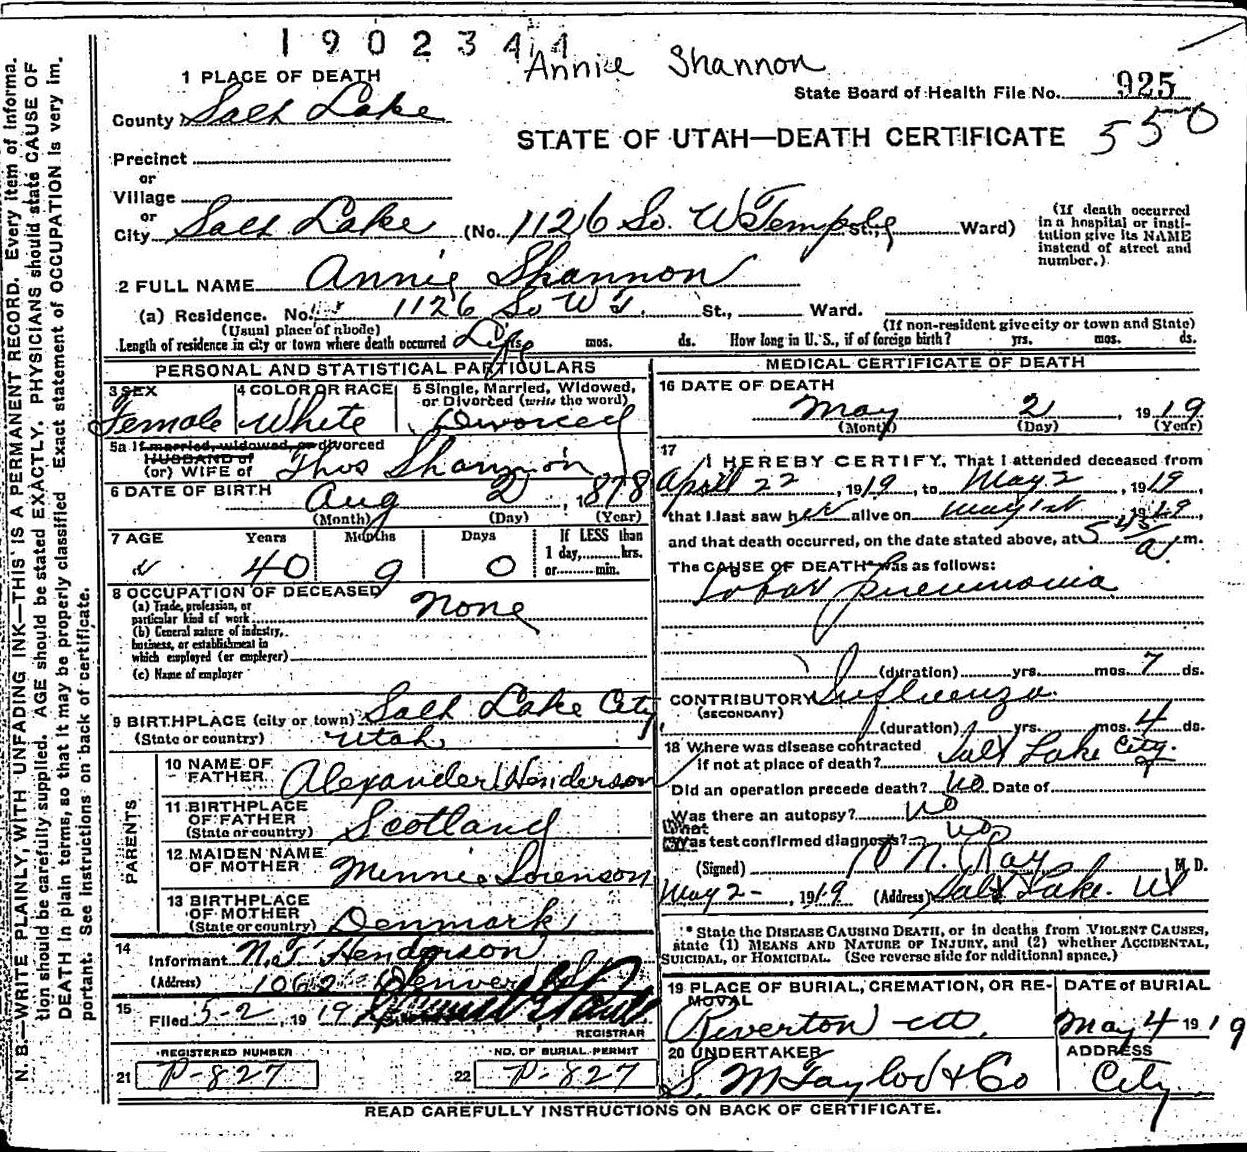 1902344
Annie Shannon
1 PLACE OF DEATH
State Board of Health File No. 925
County Salt Lake
STATE OF UTAH—DEATH CERTIFICATE 550
Precinct
or
Village
or
City Salt Lake (No. 1126 So. W Temple St.; Ward)
(If death occurred in a hospital or institution give its NAME instead of street and number.)
2 FULL NAME Annie Shannon
(a) Residence. No. 1126 So W T. St., Ward.
(Usual place of abode) (If non-resident give city or town and State)
Length of residence in city or town where death occurred Life yrs. mos. ds. How long in U. S., if of foreign birth? yrs. mos. ds.
PERSONAL AND STATISTICAL PARTICULARS
3 SEX Female
4 COLOR OR RACE White
5 Single, Married, Widowed, or Divorced (write the word) Divorced
5a If married, widowed, or divorced
HUSBAND of
(or) WIFE of Thos Shannon
6 DATE OF BIRTH Aug 2, 1878
(Month) (Day) (Year)
7 AGE Years Months Days If LESS than
40 9 0 1 day, hrs.
or min.
8 OCCUPATION OF DECEASED None
(a) Trade, profession, or
particular kind of work
(b) General nature of industry,
business, or establishment in
which employed (or employer)
(c) Name of employer
9 BIRTHPLACE (city or town) Salt Lake City
(State or country) Utah
PARENTS
10 NAME OF FATHER Alexander Henderson
11 BIRTHPLACE OF FATHER (State or country) Scotland
12 MAIDEN NAME OF MOTHER Minnie Sorenson
13 BIRTHPLACE OF MOTHER (State or country) Denmark
14
Informant N. T. Henderson
(Address) 1062 Denver St
15
Filed 5-2, 1919
REGISTRAR
REGISTERED NUMBER
21 P-827
NO. OF BURIAL PERMIT
22 P-827
MEDICAL CERTIFICATE OF DEATH
16 DATE OF DEATH
May 2, 1919
(Month) (Day) (Year)
17
I HEREBY CERTIFY, That I attended deceased from
April 22, 1919, to May 2, 1919,
that I last saw her alive on May 1st, 1919,
and that death occurred, on the date stated above, at 5 45/a m.
The CAUSE OF DEATH* was as follows:
Lobar pneumonia
(duration) yrs. mos. 7 ds.
CONTRIBUTORY Influenza
(SECONDARY)
(duration) yrs. mos. 4 ds.
18 Where was disease contracted
if not at place of death? Salt Lake City.
Did an operation precede death? no Date of
Was there an autopsy? no
What
Was test confirmed diagnosis? no
(Signed) Ray, M. D.
May 2-, 1919 (Address) Salt Lake. Ut
* State the DISEASE CAUSING DEATH, or in deaths from VIOLENT CAUSES,
state (1) MEANS AND NATURE OF INJURY, and (2) whether ACCIDENTAL,
SUICIDAL, or HOMICIDAL. (See reverse side for additional space.)
19 PLACE OF BURIAL, CREMATION, OR REMOVAL
Riverton
DATE of BURIAL
May 4 1919
20 UNDERTAKER
S. M Taylor & Co
ADDRESS
City
READ CAREFULLY INSTRUCTIONS ON BACK OF CERTIFICATE.
N. B.—WRITE PLAINLY, WITH UNFADING INK—THIS IS A PERMANENT RECORD. Every item of informa-
tion should be carefully supplied. AGE should be stated EXACTLY. PHYSICIANS should state CAUSE OF
DEATH in plain terms, so that it may be properly classified. Exact statement of OCCUPATION is very im-
portant. See instructions on back of certificate.